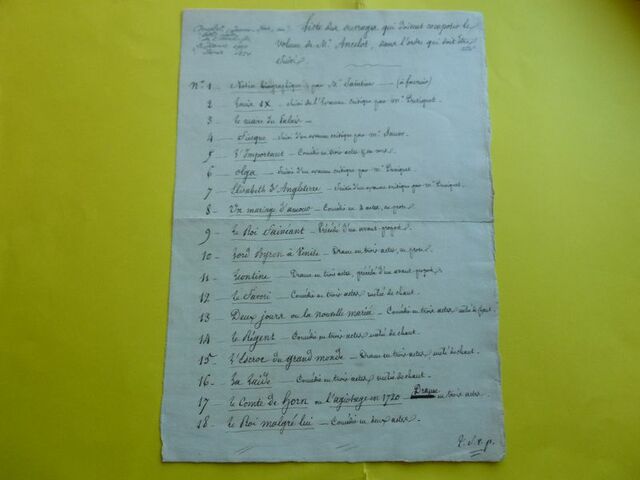 Liste des ouvrages qui doivent composer le
volume de Mr Ancelot, dans l'ordre qui doit être
suivi
No 1 — Notice biographique par Mr Saintine — (à fournir)
2 — Louis IX — suivi de l'examen critique par Mr
3 — Le maire du Palais —
4 — Fiesque — Suivi d'un examen critique par Mr
5 — L'Important — Comédie en trois actes & en vers
6 — Olga — Suivi d'un examen critique par Mr
7 — Elisabeth d'Angleterre — Suivi d'un examen critique par Mr
8 — Un mariage d'amour — Comédie en 3 actes, en prose
9 — Le Roi Fainéant — Précédé d'un avant-propos
10 — Lord Byron à Venise — Drame en trois actes, en prose
11 — Léontine — Drame en trois actes, précédé d'un avant-propos
12 — Le Favori — Comédie en trois actes mêlée de chant.
13 — Deux jours ou la nouvelle mariée — Comédie en trois actes mêlée de chant.
14 — Le Régent — Comédie en trois actes mêlée de chant.
15 — L'Escroc du grand monde — Drame en trois actes mêlé de chant.
16 — La Laide — Comédie en trois actes mêlée de chant.
17 — Le Comte de Horn ou l'agiotage en 1720 Drame en trois actes
18 — Le Roi malgré lui — Comédie en deux actes.
T.S.V.P.